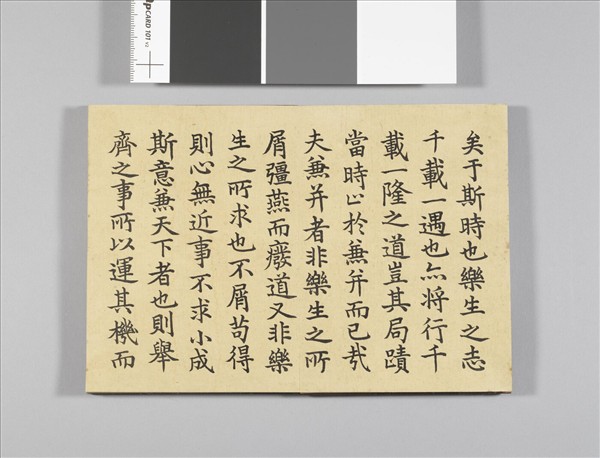 pCARD 101 v2
矣于斯時也樂生之志
千載一遇也亦将行千
載一隆之道豈其局蹟
當時止於兼并而已哉
夫兼并者非樂生之所
屑彊燕而廢道又非樂
生之所求也不屑苟得
則心無近事不求小成
斯意兼天下者也則舉
齊之事所以運其機而